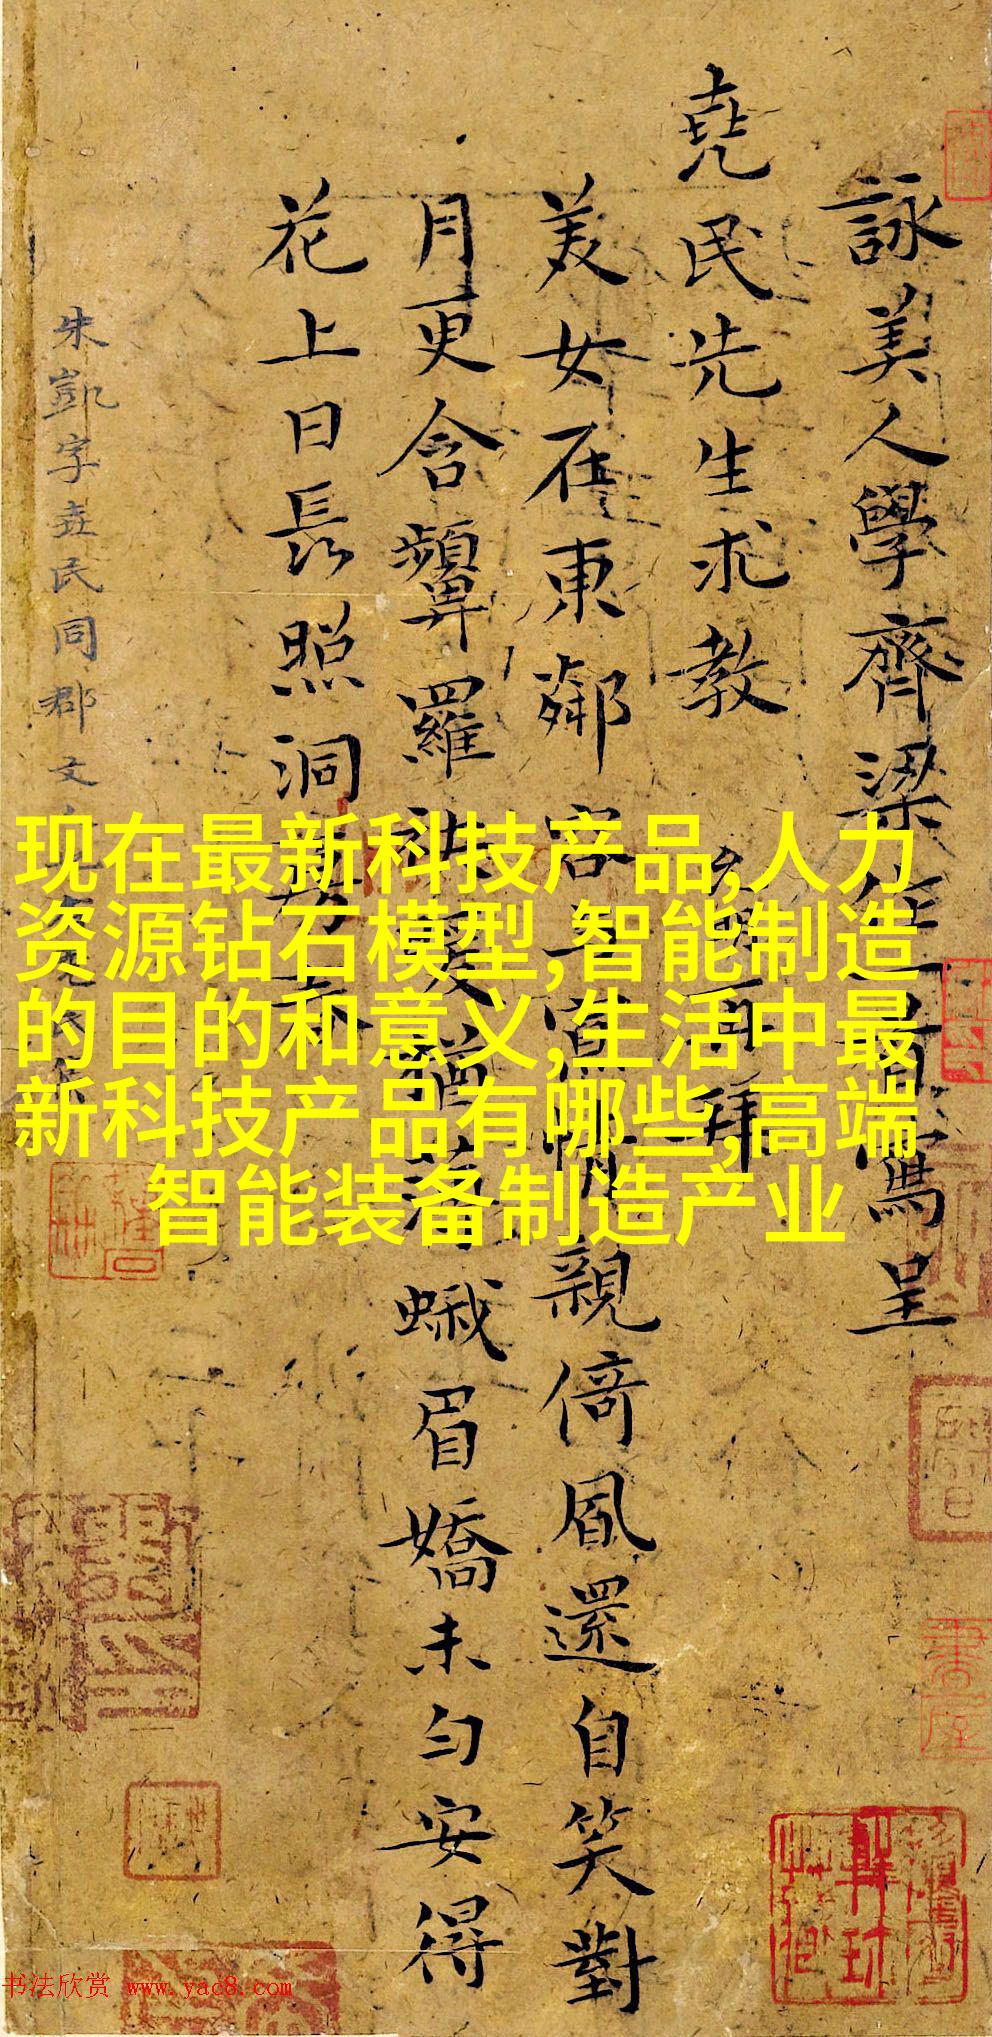 詠美人學齊梁作一首寫呈
堯民先生求教
再拜
美女在東鄰容人賞情親倚風還自笑對
月更含顰羅袂裛猶薄蛾眉嬌未勻安得
花上日長照洞房春
朱凱字堯民同郡文
现在最新科技产品,人力
资源钻石模型,智能制造
的目的和意义,生活中最
新科技产品有哪些,高端
智能装备制造产业
书法欣赏 www.yac8.com